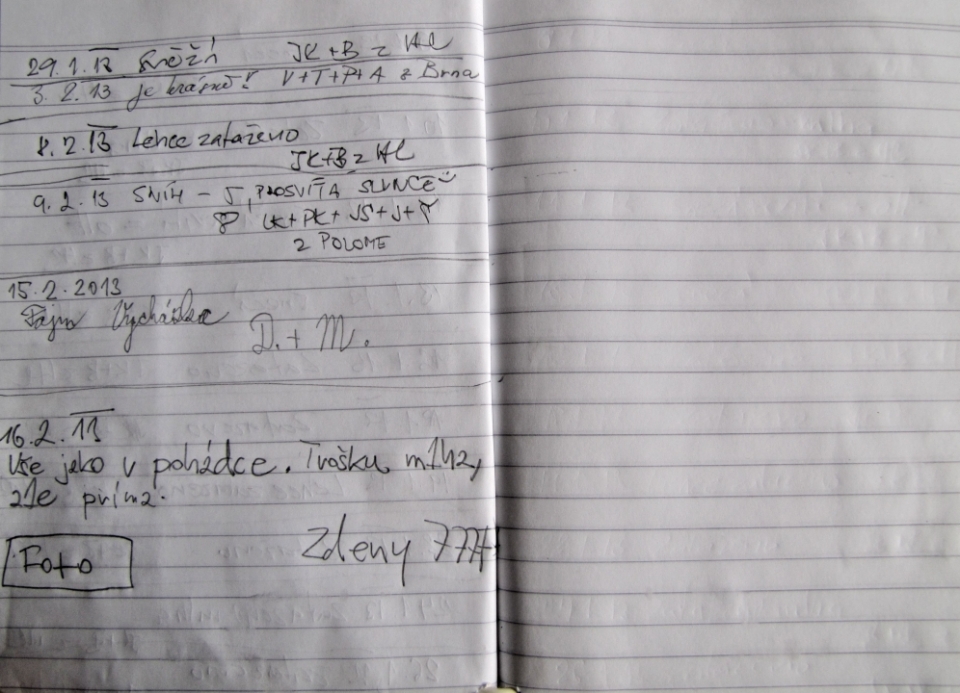 29.1.13 Sněží JK+B z HL
3.2.13 je krásně! V+T+P+A z Brna
8.2.13 Lehce zataženo
JK+B z HL
9.2.13 SNÍH - J, PROSVÍTÁ SLUNCE
LK+PK+JŠ+J+T
Z POLOME
15.2.2013
Fajn Vycházka
D.+M.
16.2.13
Vše jako v pohádce. Trošku mlha,
ale príma.
Zdeny
Foto